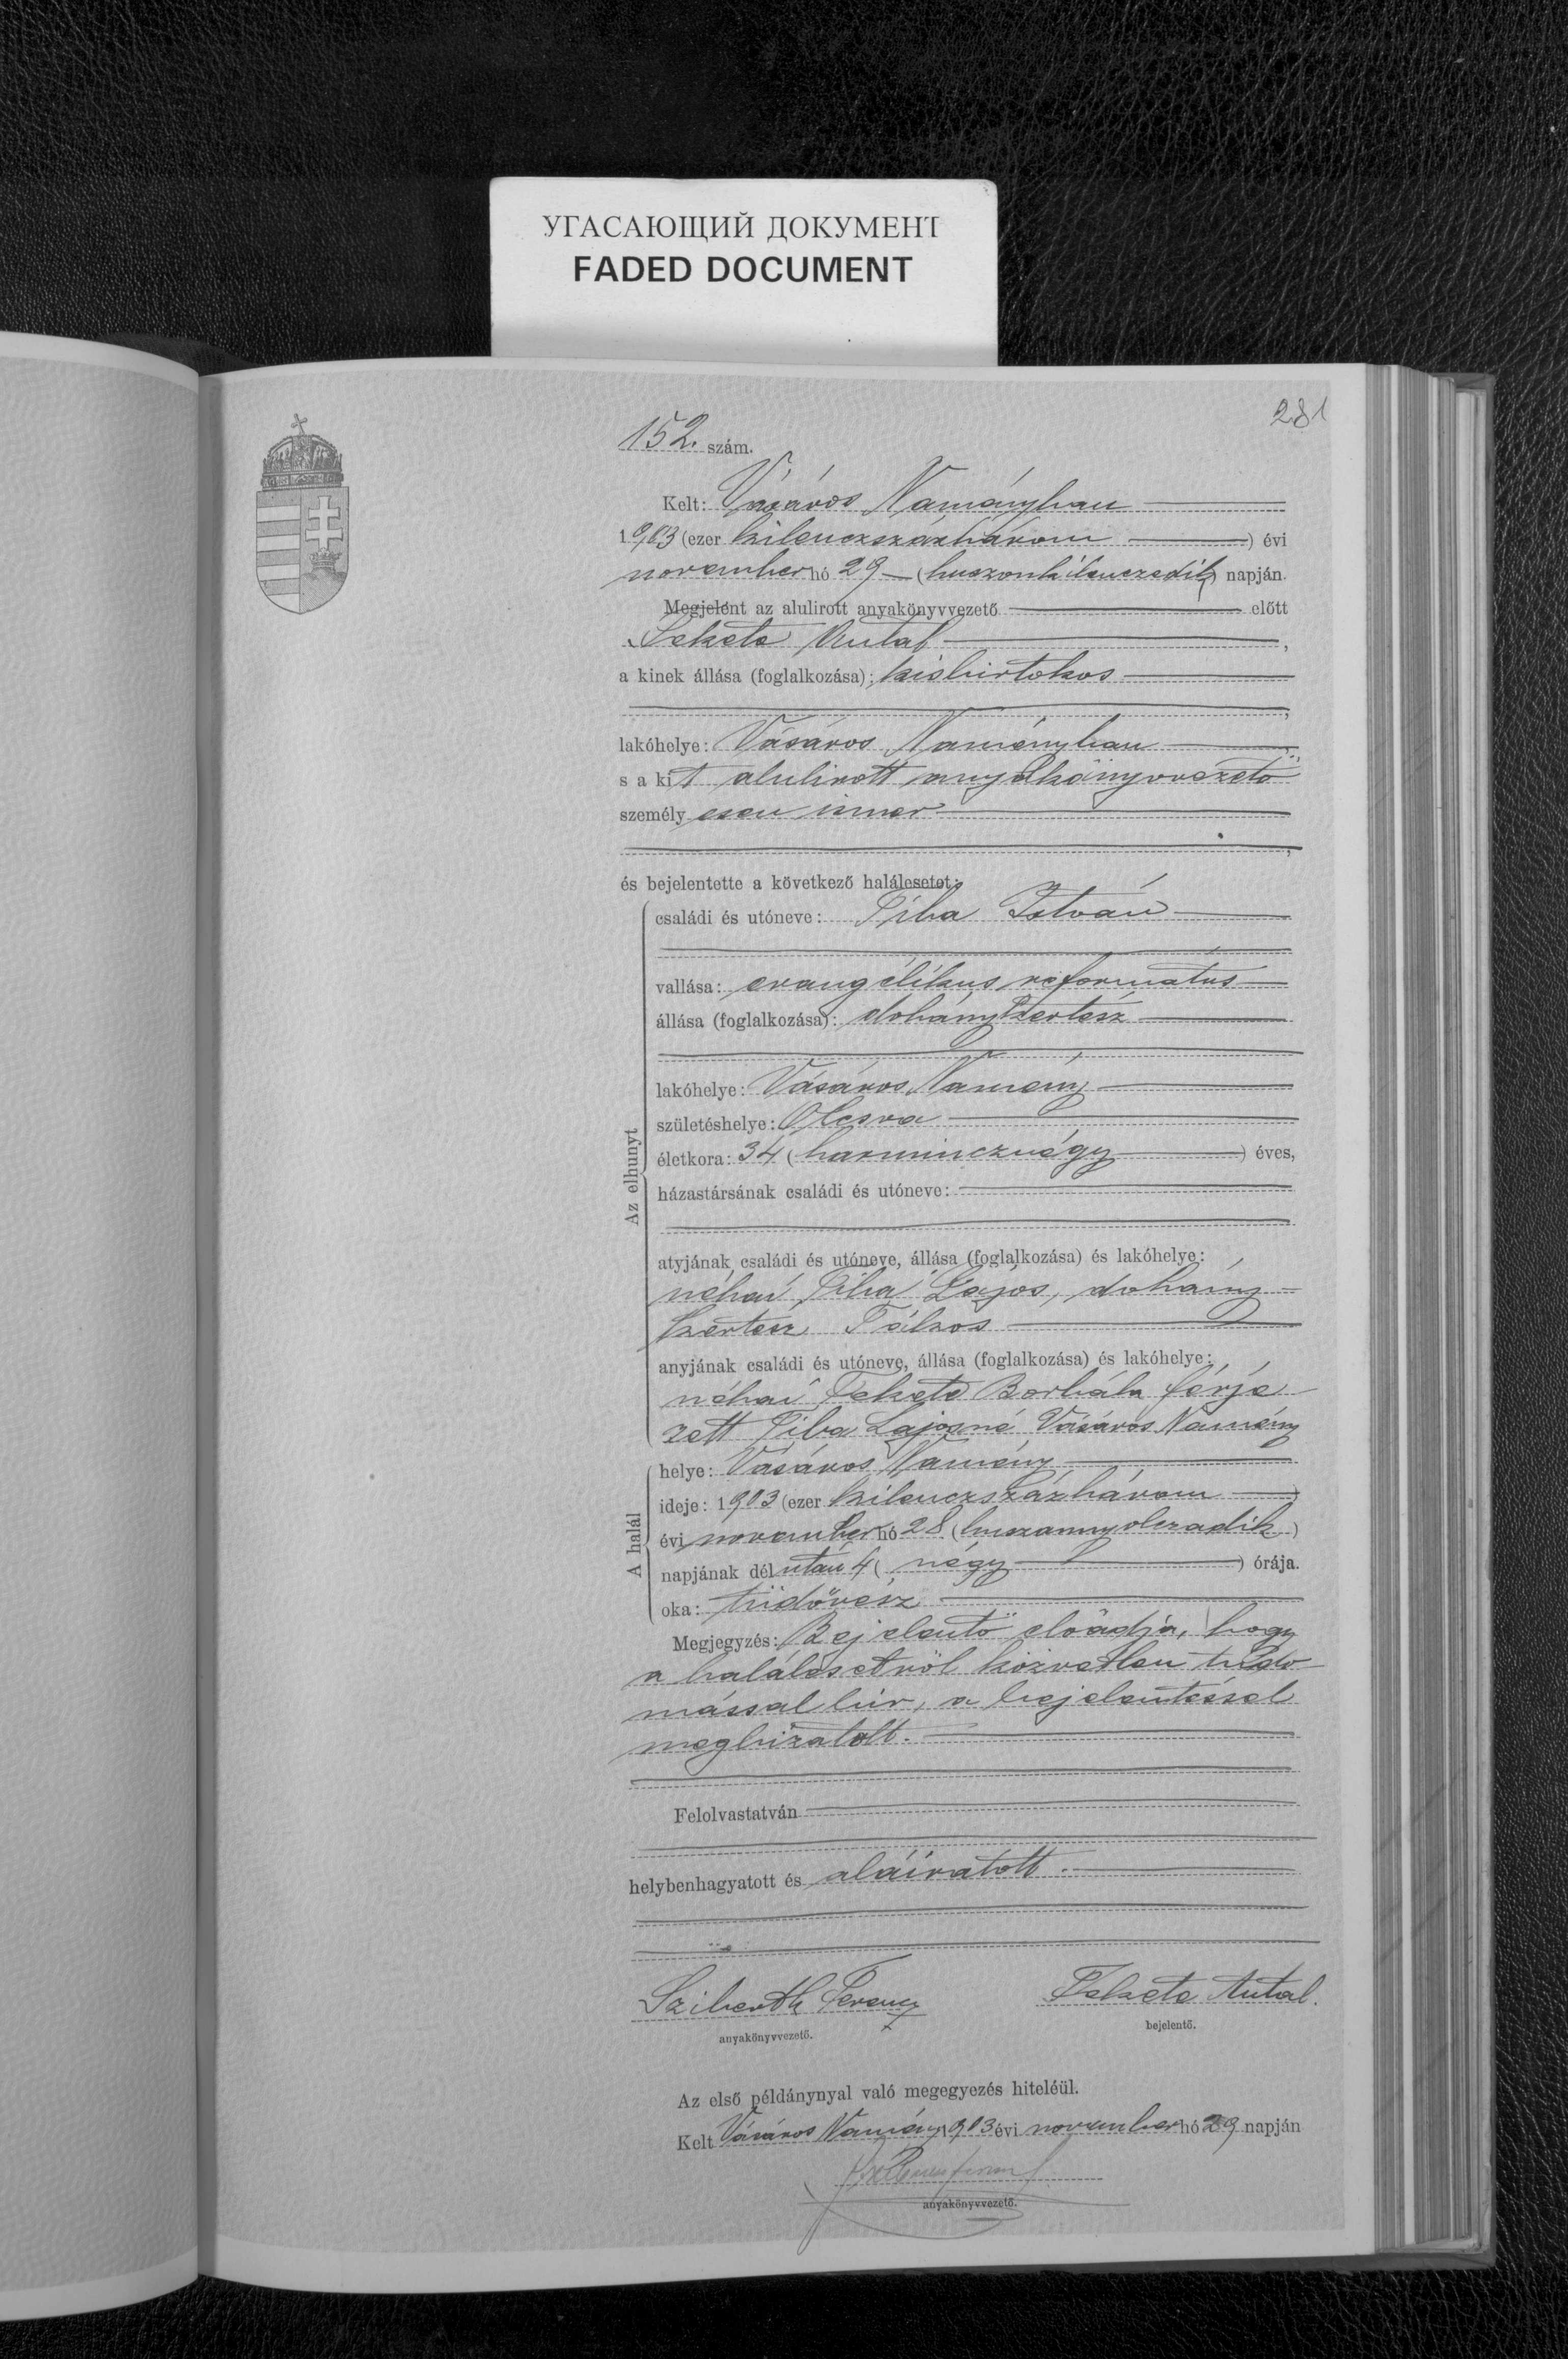 УГАСАЮЩИЙ ДОКУМЕНТ
FADED DOCUMENT
281
152. szám.
Kelt: Vásáros Naményban
1903 (ezer kilenczszázhárom) évi
november hó 29 (huszonkilenczedik) napján.
Megjelent az alulirott anyakönyvvezető előtt
Fekete Antal,
a kinek állása (foglalkozása): kisbirtokos
,
lakóhelye: Vásáros Naményban
s a kit alulirott anyakönyvvezető
személyesen ismer
,
és bejelentette a következő halálesetet:
Az elhunyt
családi és utóneve: Piba István
vallása: evangélikus református
állása (foglalkozása): dohánykertész
lakóhelye: Vásáros Namény
születéshelye: Olcsva
életkora: 34 (harmincznégy) éves,
házastársának családi és utóneve:
atyjának családi és utóneve, állása (foglalkozása) és lakóhelye:
néhai Piba Lajos, dohány-
kertész
anyjának családi és utóneve, állása (foglalkozása) és lakóhelye:
néhai Fekete Borbála férje
zett Piba Lajosné Vásáros Namény
A halál
helye: Vásáros Namény
ideje: 1903 (ezer kilenczszázhárom)
évi november hó 28 (huszonnyolczadik)
napjának délután 4 (négy) órája.
oka: tüdővész
Megjegyzés: Bejelentő előadja, hogy
a halálesetről közvetlen tudo
mással bír, a bejelentéssel
megbizatott.
Felolvastatván
helybenhagyatott és aláíratott.
Sziberth Ferencz
anyakönyvvezető.
Fekete Antal.
bejelentő.
Az első példánynyal való megegyezés hiteléül.
Kelt Vásáros Namény 1903 évi november hó 29 napján
anyakönyvvezető.